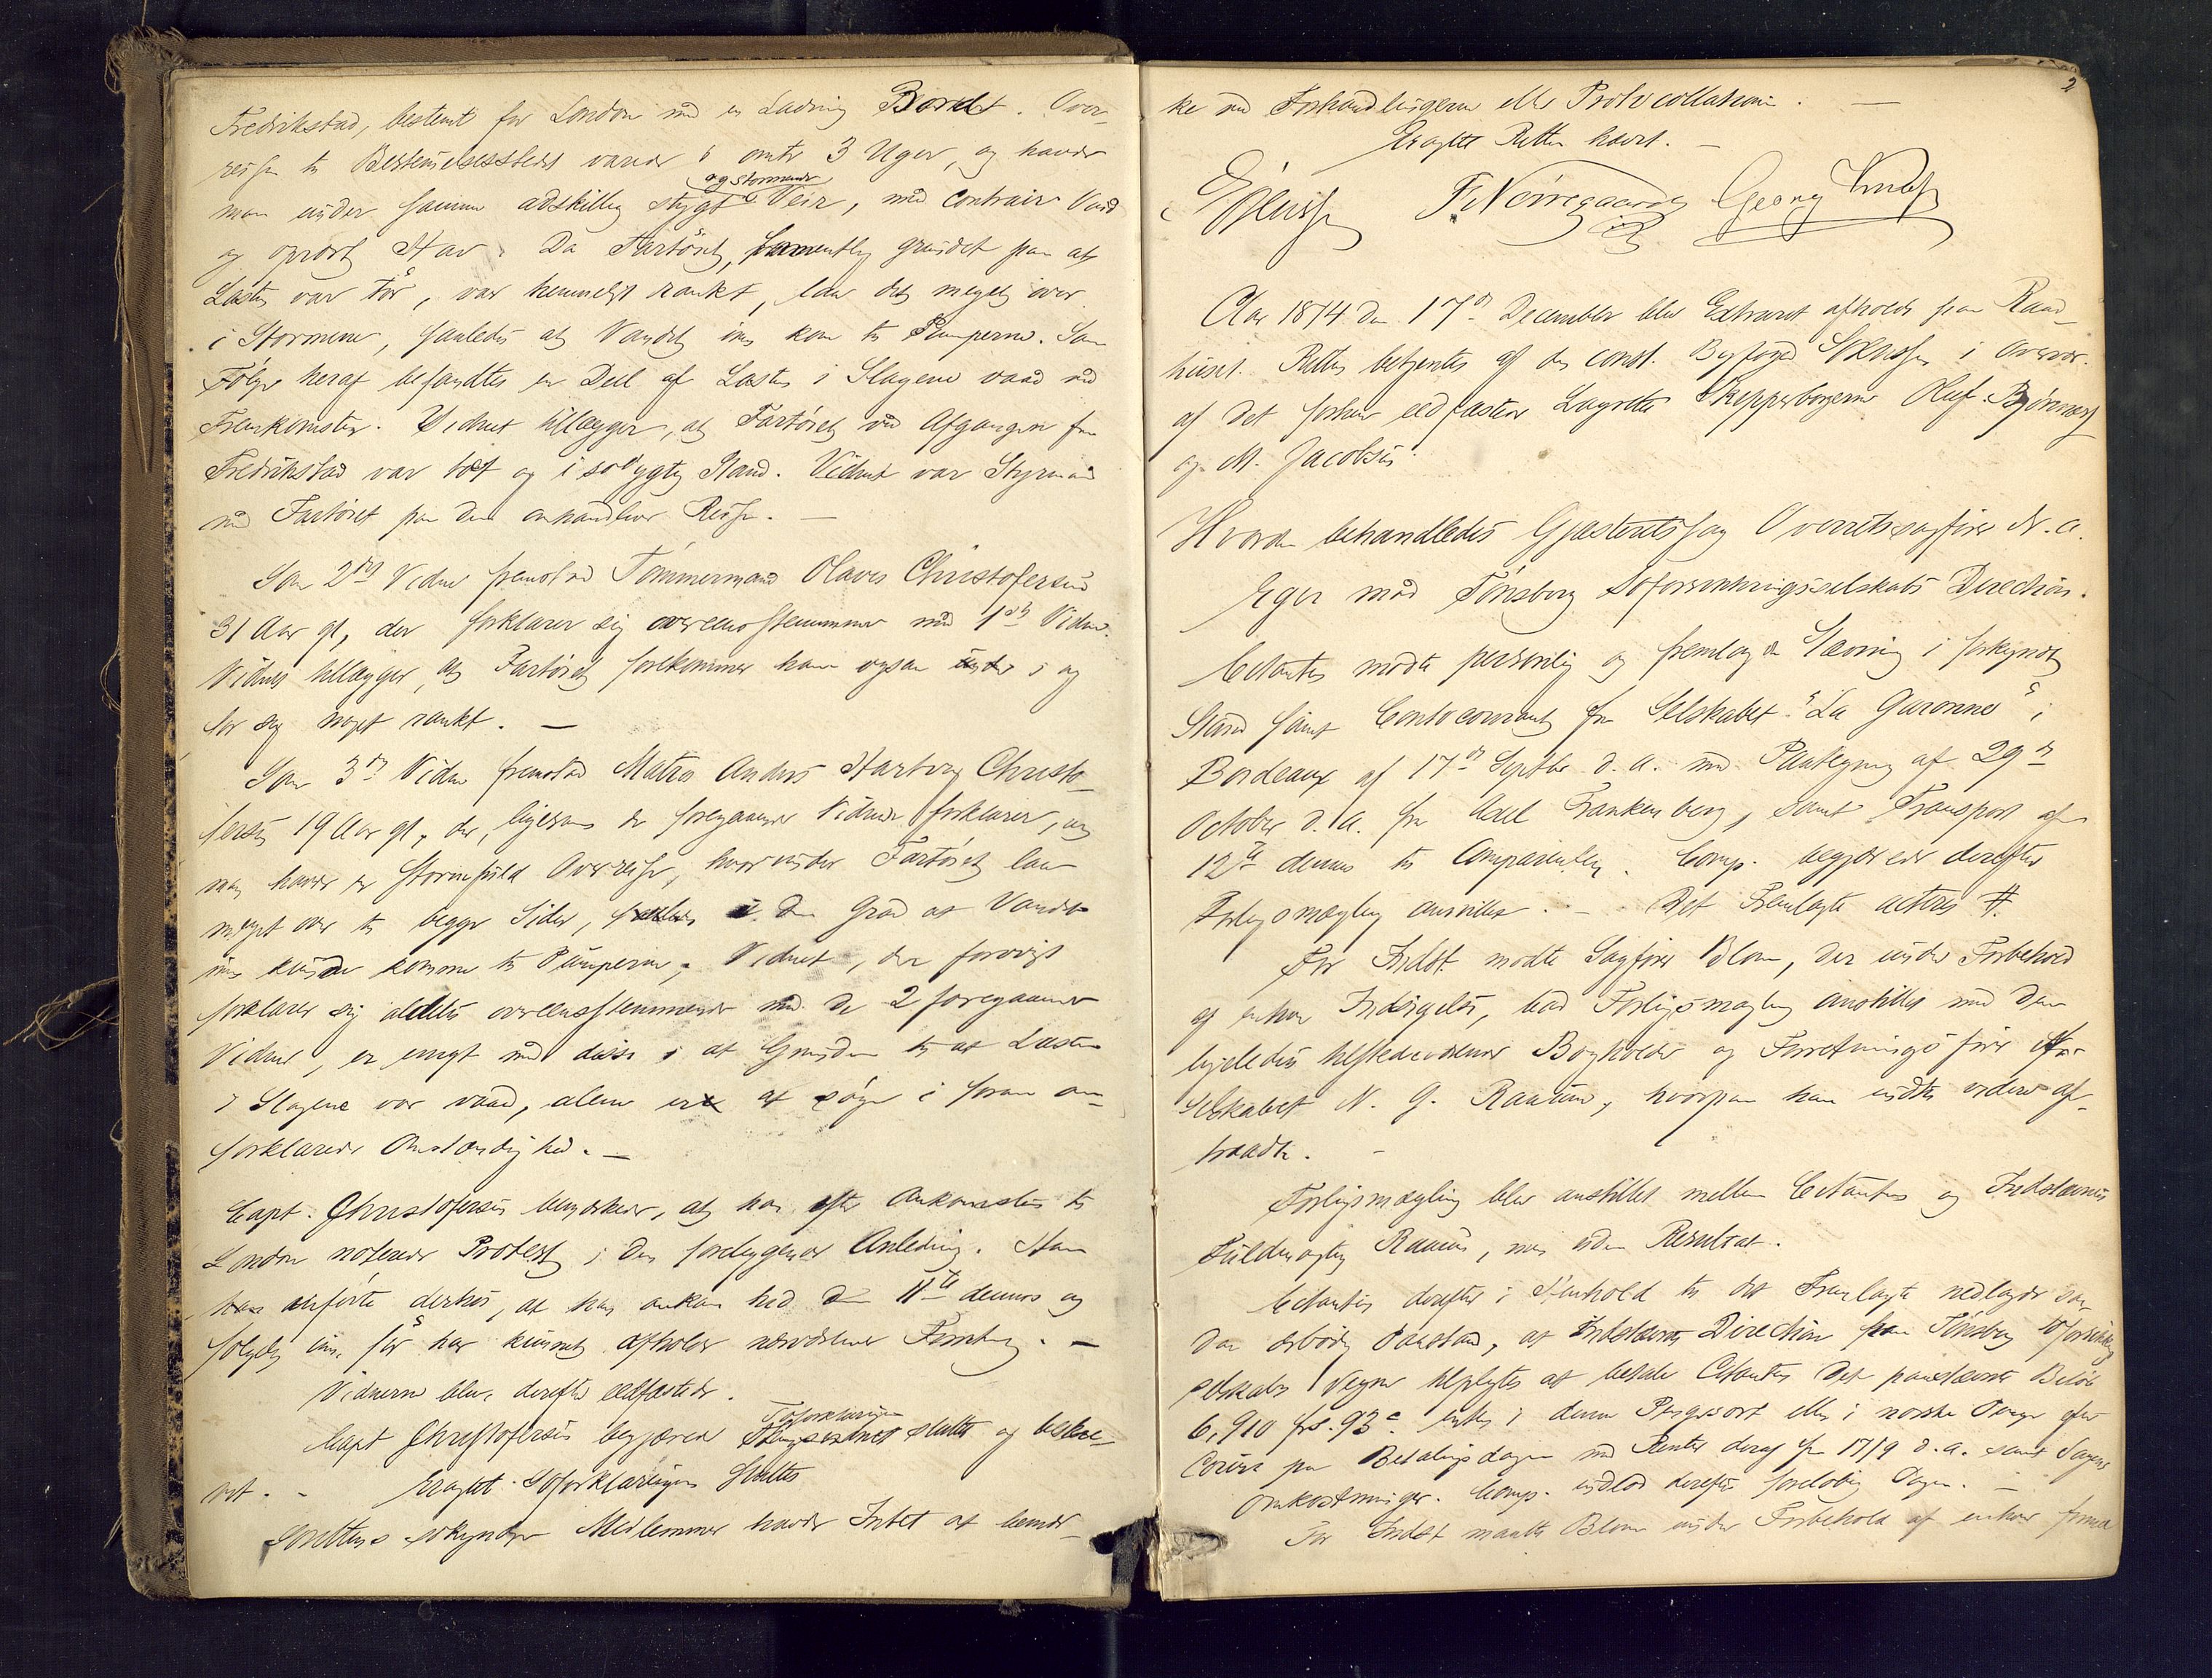 Fredrikstad, bestemt for London med en Ladning Bord. Over-
reisen til Bestemmelsesstedet varede i omtr 3 Uger, og havde
man under samme adskillig stygt og stormende Veir, med contrair Vind
og oprørt Hav. Da Fartöiet, grundet paa at
Lasten var tör, var temmeligt rankt, laa det meget over
i Stormene, saaledes at Vandet ei kom til Pumperne. Som
Fölge heraf befandtes en Deel af Lasten i Slagene vaad ved
Fremkomsten. Vidnet tillægger, at Fartöiet ved Afgangen fra
Fredrikstad var tæt og i sødygtig Stand. Vidnet var Styrmand
med Fartöiet paa den omhandlede Reise. —
Som 2det Vidne fremstod Tömmermand Olaves Christofersen
31 Aar gl, der forklarer sig overeensstemmende med 1ste Vidne.
Vidnet tillægger, at Fartöiet forekommer ham ogsaa i og
for sig noget rankt. —
Som 3die Vidne fremstod Matros Anders Hartvig Christo-
fersen 19 Aar gl, der, ligesom de foregaaende Vidner forklarer, at
man havde en stormfuld Overreise, hvorunder Fartöiet laa
meget over til begge Sider, i den Grad at Vandet
ei kunde komme til Pumperne. Vidnet, der forövrigt
forklarer sig aldeles overeensstemmende med de 2 foregaaende
Vidner, er enigt med disse i at Grunden til at Lasten
i Slagene var vaad, alene er at söge i foran om-
forklarede Omstændighed. —
Capt. Christofersen bemærkede, at han efter Ankomsten til
London noterede Protest i den foreliggende Anledning. Han
anförte derhos, at han ankom hid den 11te dennes og
fölgelig ei för har kunnet afholde nærværende Forretning. —
Vidnerne blev derefter eedfæstede.
Capt Christofersen begjærede Söforklaringen sluttet og beskre-
vet. - Eragtet. Söforklaringen sluttes
Sørettens søkyndige Medlemmer havde Intet at bemær-
2
ke ved Forhandlingerne eller Protocollationen. —
Eragtet Retten hævet. —
F. Nørregaard Georg
Aar 1874 den 17de December blev Extraret afholdt paa Raad-
huset. Retten betjentes af den const. Byfoged i Overvær
af det forhen eedfæstede Lagrette Skipperborgerne Oluf Bjönness
og M. Jacobsen.
Hvorda behandledes Gjæsteretssag Overretssagförer N. A.
Eger mod Tönsberg Söforsikringsselskabs Direction.
Citanten mødte personlig og fremlagde Stævning i forkyndt
Stand samt Contocourant fra Selskabet "La Garonne" i
Bordeaux af 17de Septbr d. A. med Paategning af 29de
October d. A. fra Axel Frankenberg, samt Transport af
12te dennes til Comparenten. Comp. begjærede derefter
Forligsmægling anstillet. — Det Fremlagte acteres #.
For Indst. mødte Sagförer Blom, der under Forbehold
af enhver Indsigelse, bad Forligsmægling anstillet med den
ligeledes tilstedeværende Bogholder og Forretningsförer for
Selskabet N. G. Raaum, hvorpaa han indtil videre af-
traadte. —
Forligsmægling blev anstillet mellem Citanten og Indstævntes
Fuldmægtig Raaum, men uden Resultat.
Citanten derefter i Henhold til det Fremlagte nedlagde saa-
dan ærbødig Paastand, at Indstævnte Direction paa Tönsberg Söforsikrings
selskabs Vegne tilpligtes at betale Citanten det paastævnte Belöb
6,910 frs. 93 c enten i denne Pengesort eller i norske Penge efter
Coursen paa Betalingsdagen med Renter deraf fra 17/9 d. A. samt Sagens
Omkostninger. Comp. indlod derefter foreløbig Sagen. —
For Indst mødte Blom under Forbehold af enhver formel